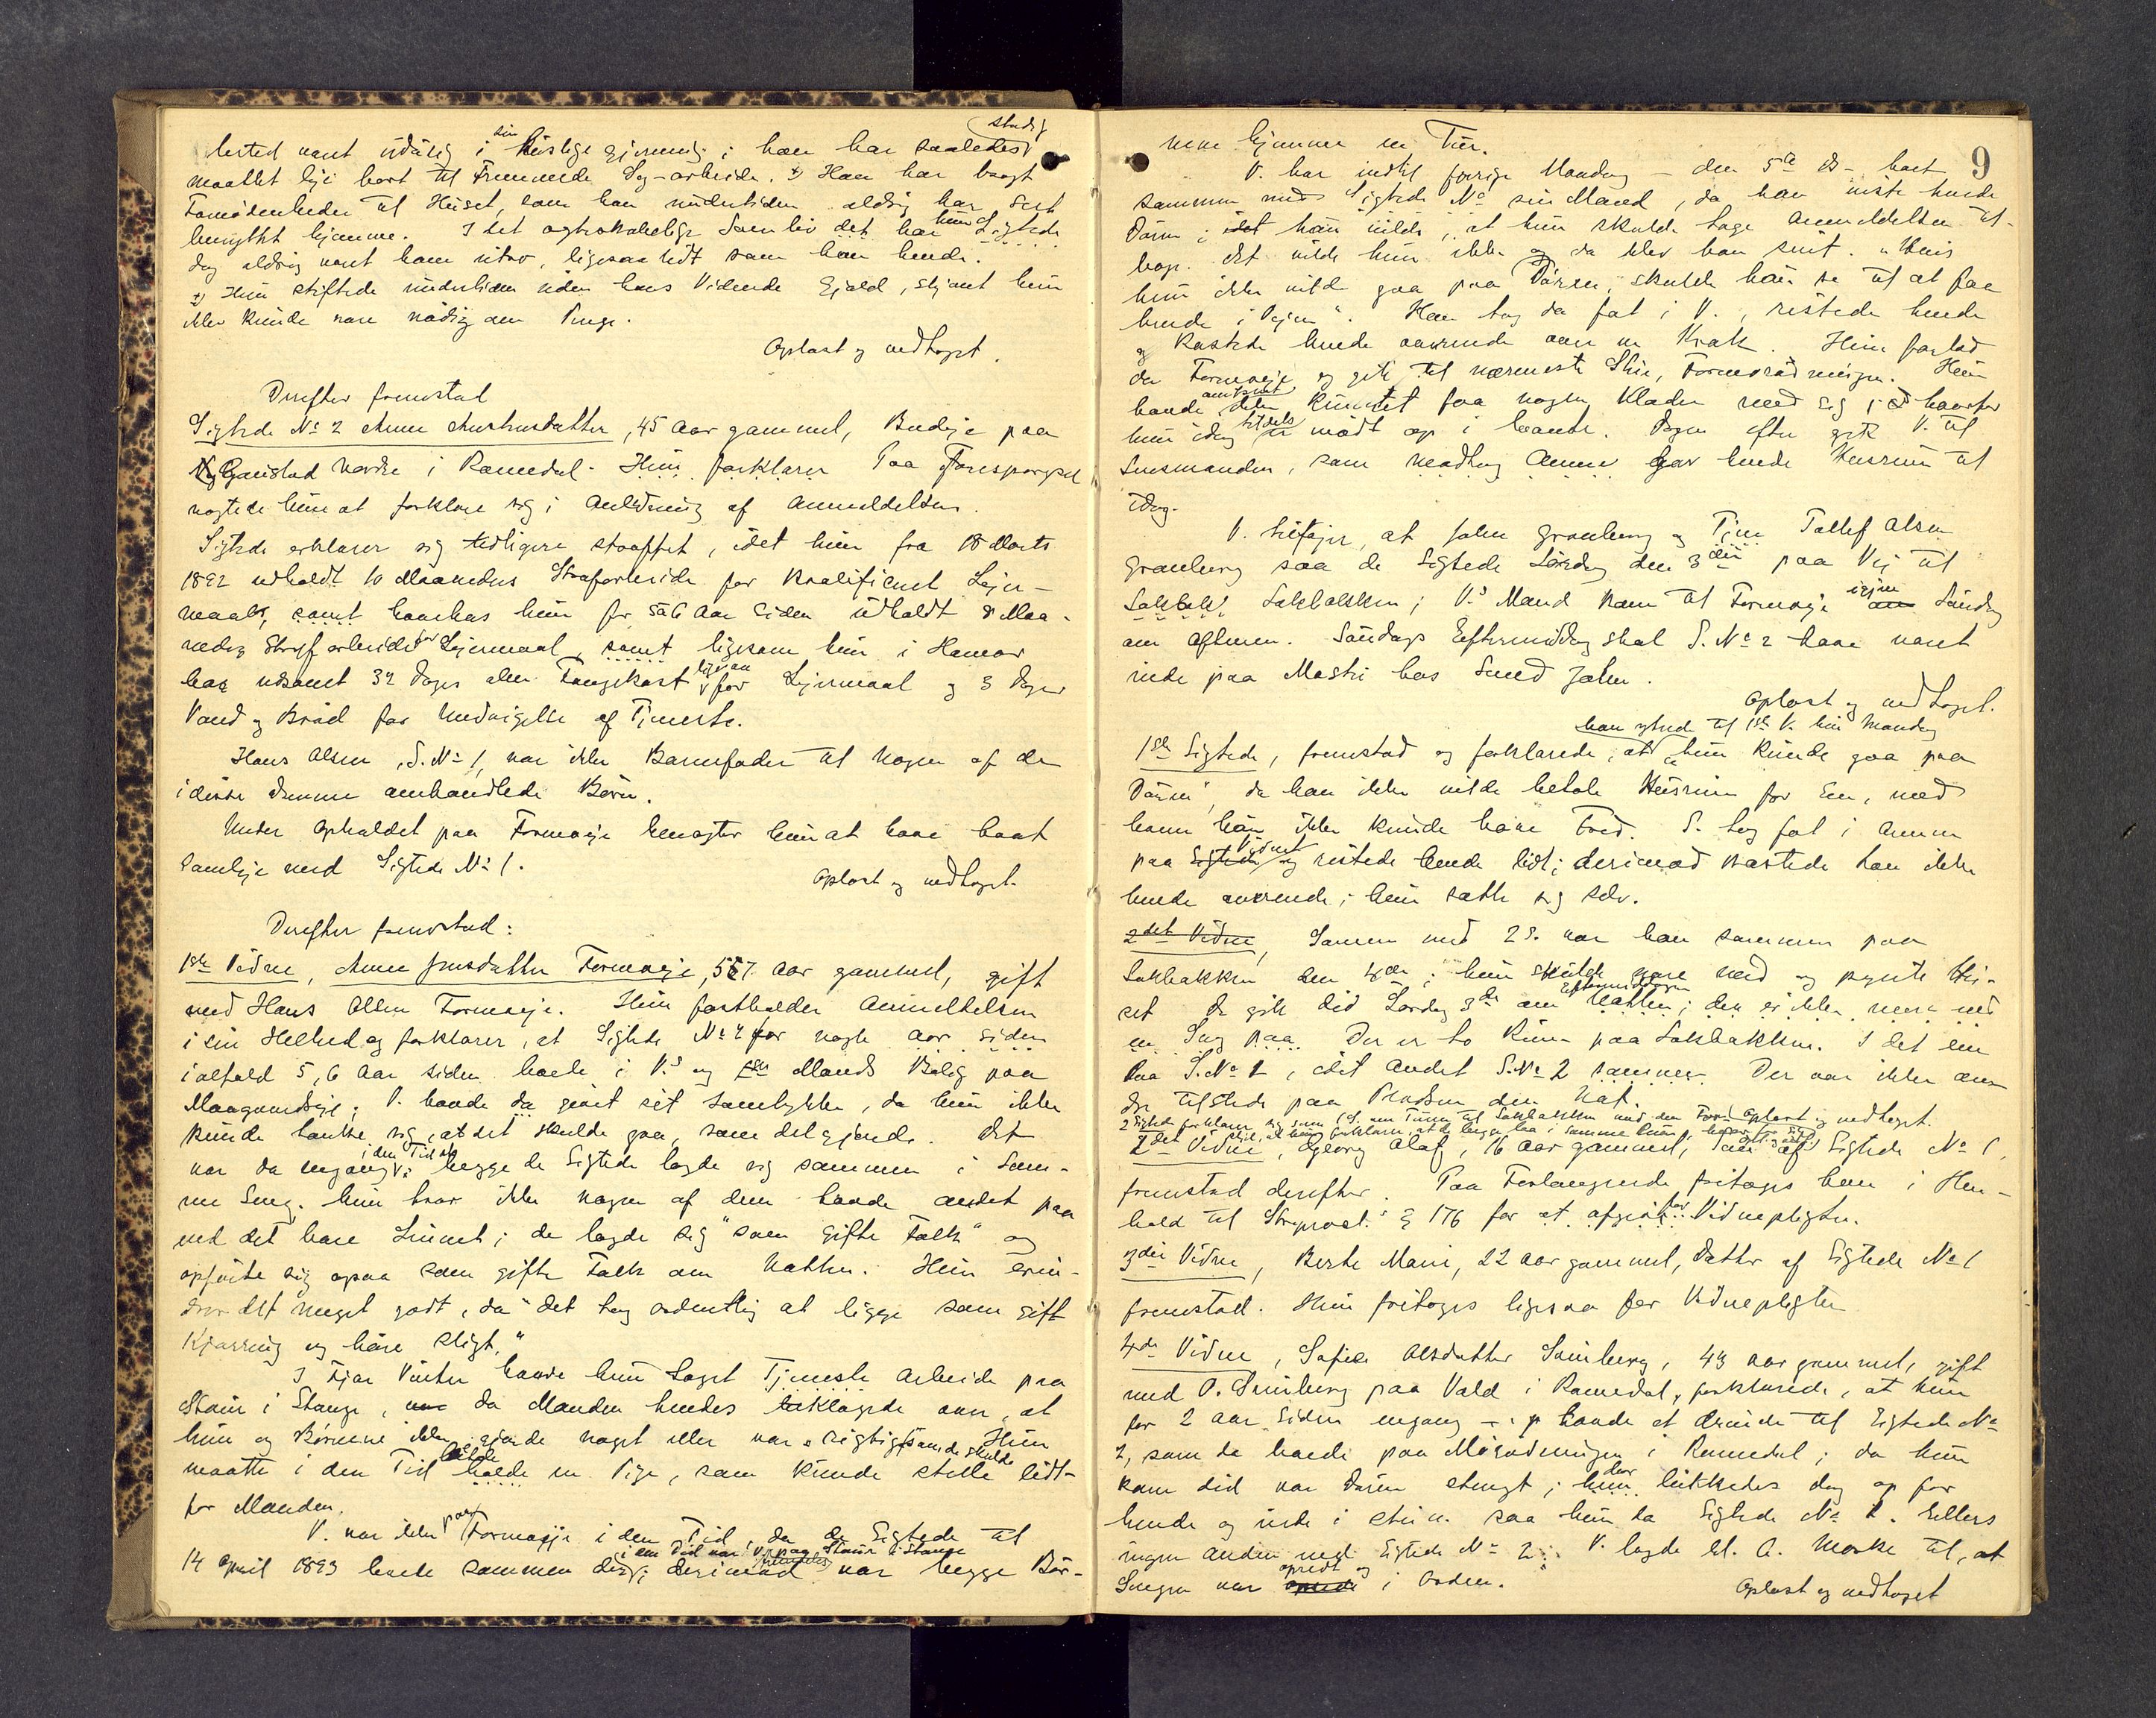 sin stadig
hersted været udulig i huslige gjerning; han har saaledes
maattet leje bort til Fremmede Sy-arbeide. x) Han har bragt
Fornødenheder til Huset, som han undertiden aldrig har seet
benyttet hjemme. I det ægteskabelige Samliv det har hun Sigtede
dog aldrig været ham utro, ligesaa lidt som han hende.
x) Hun stiftede undertiden uden hans Vidende Gjæld, skjønt hun
ikke kunde være nødig om Penge.
Oplæst og vedtaget.
Derefter fremstod
Sigtede No 2 Anne Andreasdatter, 45 Aar gammel, Budeje paa
Gaustad Nordre i Romedal. Hun forklarer Paa Forespørgsel
nægtede hun at forklare sig i Anledning af Anmeldelsen.
Sigtede erklærer sig tidligere straffet, idet hun fra 18 Marts
1892 udholdt 10 Maaneders Strafarbeide for kvalificeret Lejer-
maal, samt hun for 5 à 6 Aar siden udholdt 8 Maa-
neders Strafarbeide for Lejermaal, samt ligesom hun i Hamar
har udsonet 32 Dages alm. Fangekost ligesaa for Lejermaal og 3 Dages
Vand og Brød for Undvigelse af Tjeneste.
Hans Olsen, S. No 1, var ikke Barnefader til nogen af de
i disse Domme omhandlede Børn.
Under Opholdet paa Formoeje benægter hun at have havt
Samleje med Sigtede No 1.
Oplæst og vedtaget.
Derefter fremstod:
1ste Vidne, Anne Jensdatter Formoeje, 57 Aar gammel, gift
med Hans Olsen Formoeje. Hun fastholder Anmeldelsen
i sin Helhed og forklarer, at Sigtede No 2 for nogle Aar siden
ialfald 5, 6 Aar siden boede i V.s og Mands Bolig paa
V. havde da givet sit Samtykke, da hun ikke
kunde tænke sig, at det skulde gaa, som det gjorde. Det
var da engang i den Tid at begge de Sigtede lagde sig sammen i Sam-
me Seng. Hun tror ikke nogen af dem havde andet paa
end det bare Linnet; de lagde sig "som gifte Folk" og
opførte sig ogsaa som gifte Folk om Natten. Hun erin-
drer det meget godt, da "det tog ordentlig at ligge som gift
Kjærring og høre sligt."
I Fjor Vinter havde hun taget Tjeneste Arbeide paa
Staur i Stange, da Manden hendes beklagede over, at
hun og Børnene ikke gjorde noget eller var "rigtig". Hun
maatte i den Tid holde en Pige, som kunde stelle lidt
for Manden.
V. var ikke paa Formoeje i den Tid, da de Sigtede til
i den Tid var V. paa Staur i Stange
14 April 1893 boede sammen der; derimod var begge Bør-
9
nene hjemme en Tur.
V. har indtil forrige Mandag – den 5te ds – boet
sammen med Sigtede No sin Mand, da han viste hende
Døren; idet han vilde, at hun skulde tage Anmeldelsen til-
bage. Det vilde hun ikke og da blev han sint. "Hvis
hun ikke vilde gaa paa Døren, skulde han se til at faa
hende i Vejen". Han tog da fat i V., ristede hende
og kastede hende overende over en Krak. Hun forlod
da Formoeje og gik til nærmeste Skie, Formorødningen. Hun
havde omtrent ikke kunnet faa nogen Klæder med sig; hvorfor
hun idag tildels er mødt op i laante. Dagen efter gik V. til
Lensmanden, som modtog Anne Gav hende Husrum til
idag.
V. tilføjer, at John Granberg og Tjen Tollef Olsen
Granberg saa de Sigtede Lørdag den 3die paa Vej til
Sokbakken; V.s Mand kom til Formoeje igjen Søndag
om Aftenen. Søndags Eftermiddag skal S. No 2 have været
inde paa Mostri hos Smed John.
Oplæst og vedtaget.
han ytrede til 1ste V. hin Mandag
1ste Sigtede, fremstod og forklarede, at "hun kunde gaa paa
Døren", da han ikke vilde betale Husrum for En, med
hvem han ikke kunde have Fred. S. tog fat i Armen
paa Vidnet og ristede hende lidt; derimod kastede han ikke
hende overende; hun satte sig selv.
2det Vidne, Sammen med 2 S. var han sammen paa
Sokbakken den 4de; hun skulde være med og pynte Hu-
set De gik did Lørdag 3de om Eftermiddagen; der er ikke mere end
en Seng paa. Der er to Rum paa Sokbakken. I det ene
laa S. No 1, i det andet S. No 2 sammen. Der var ikke an-
dre tilstede paa Pladsen den Nat.
Oplæst og vedtaget.
2 Sigtede forklarer sig som 1 S. om Turen til Sokbakken
2det Vidne, Georg Olaf, 16 Aar gammel, Søn af Sigtede No 1,
fremstod derefter. Paa Forlangende fritages han i Hen-
hold til Strprocl.s § 176 for at afgive Vidnepligten.
3die Vidne, Berte Marie, 22 Aar gammel, Datter af Sigtede No 1
fremstod. Hun fritages ligesaa for Vidnepligten
4de Vidne, Sofie Olsdatter Sviberg, 43 Aar gammel, gift
med O. Sviberg paa Vald i Romedal, forklarede, at hun
for 2 Aar siden engang havde et Ærinde til Sigtede No
2, som da boede paa Morødningen i Romedal; da hun
kom did var Døren stengt; der lukkedes dog op for
hende og inde i Stuen saa hun da Sigtede No 1. Ellers
ingen anden end Sigtede No 2. V. lagde bl. A. Mærke til, at
Sengen var opredt og i Orden.
Oplæst og vedtaget